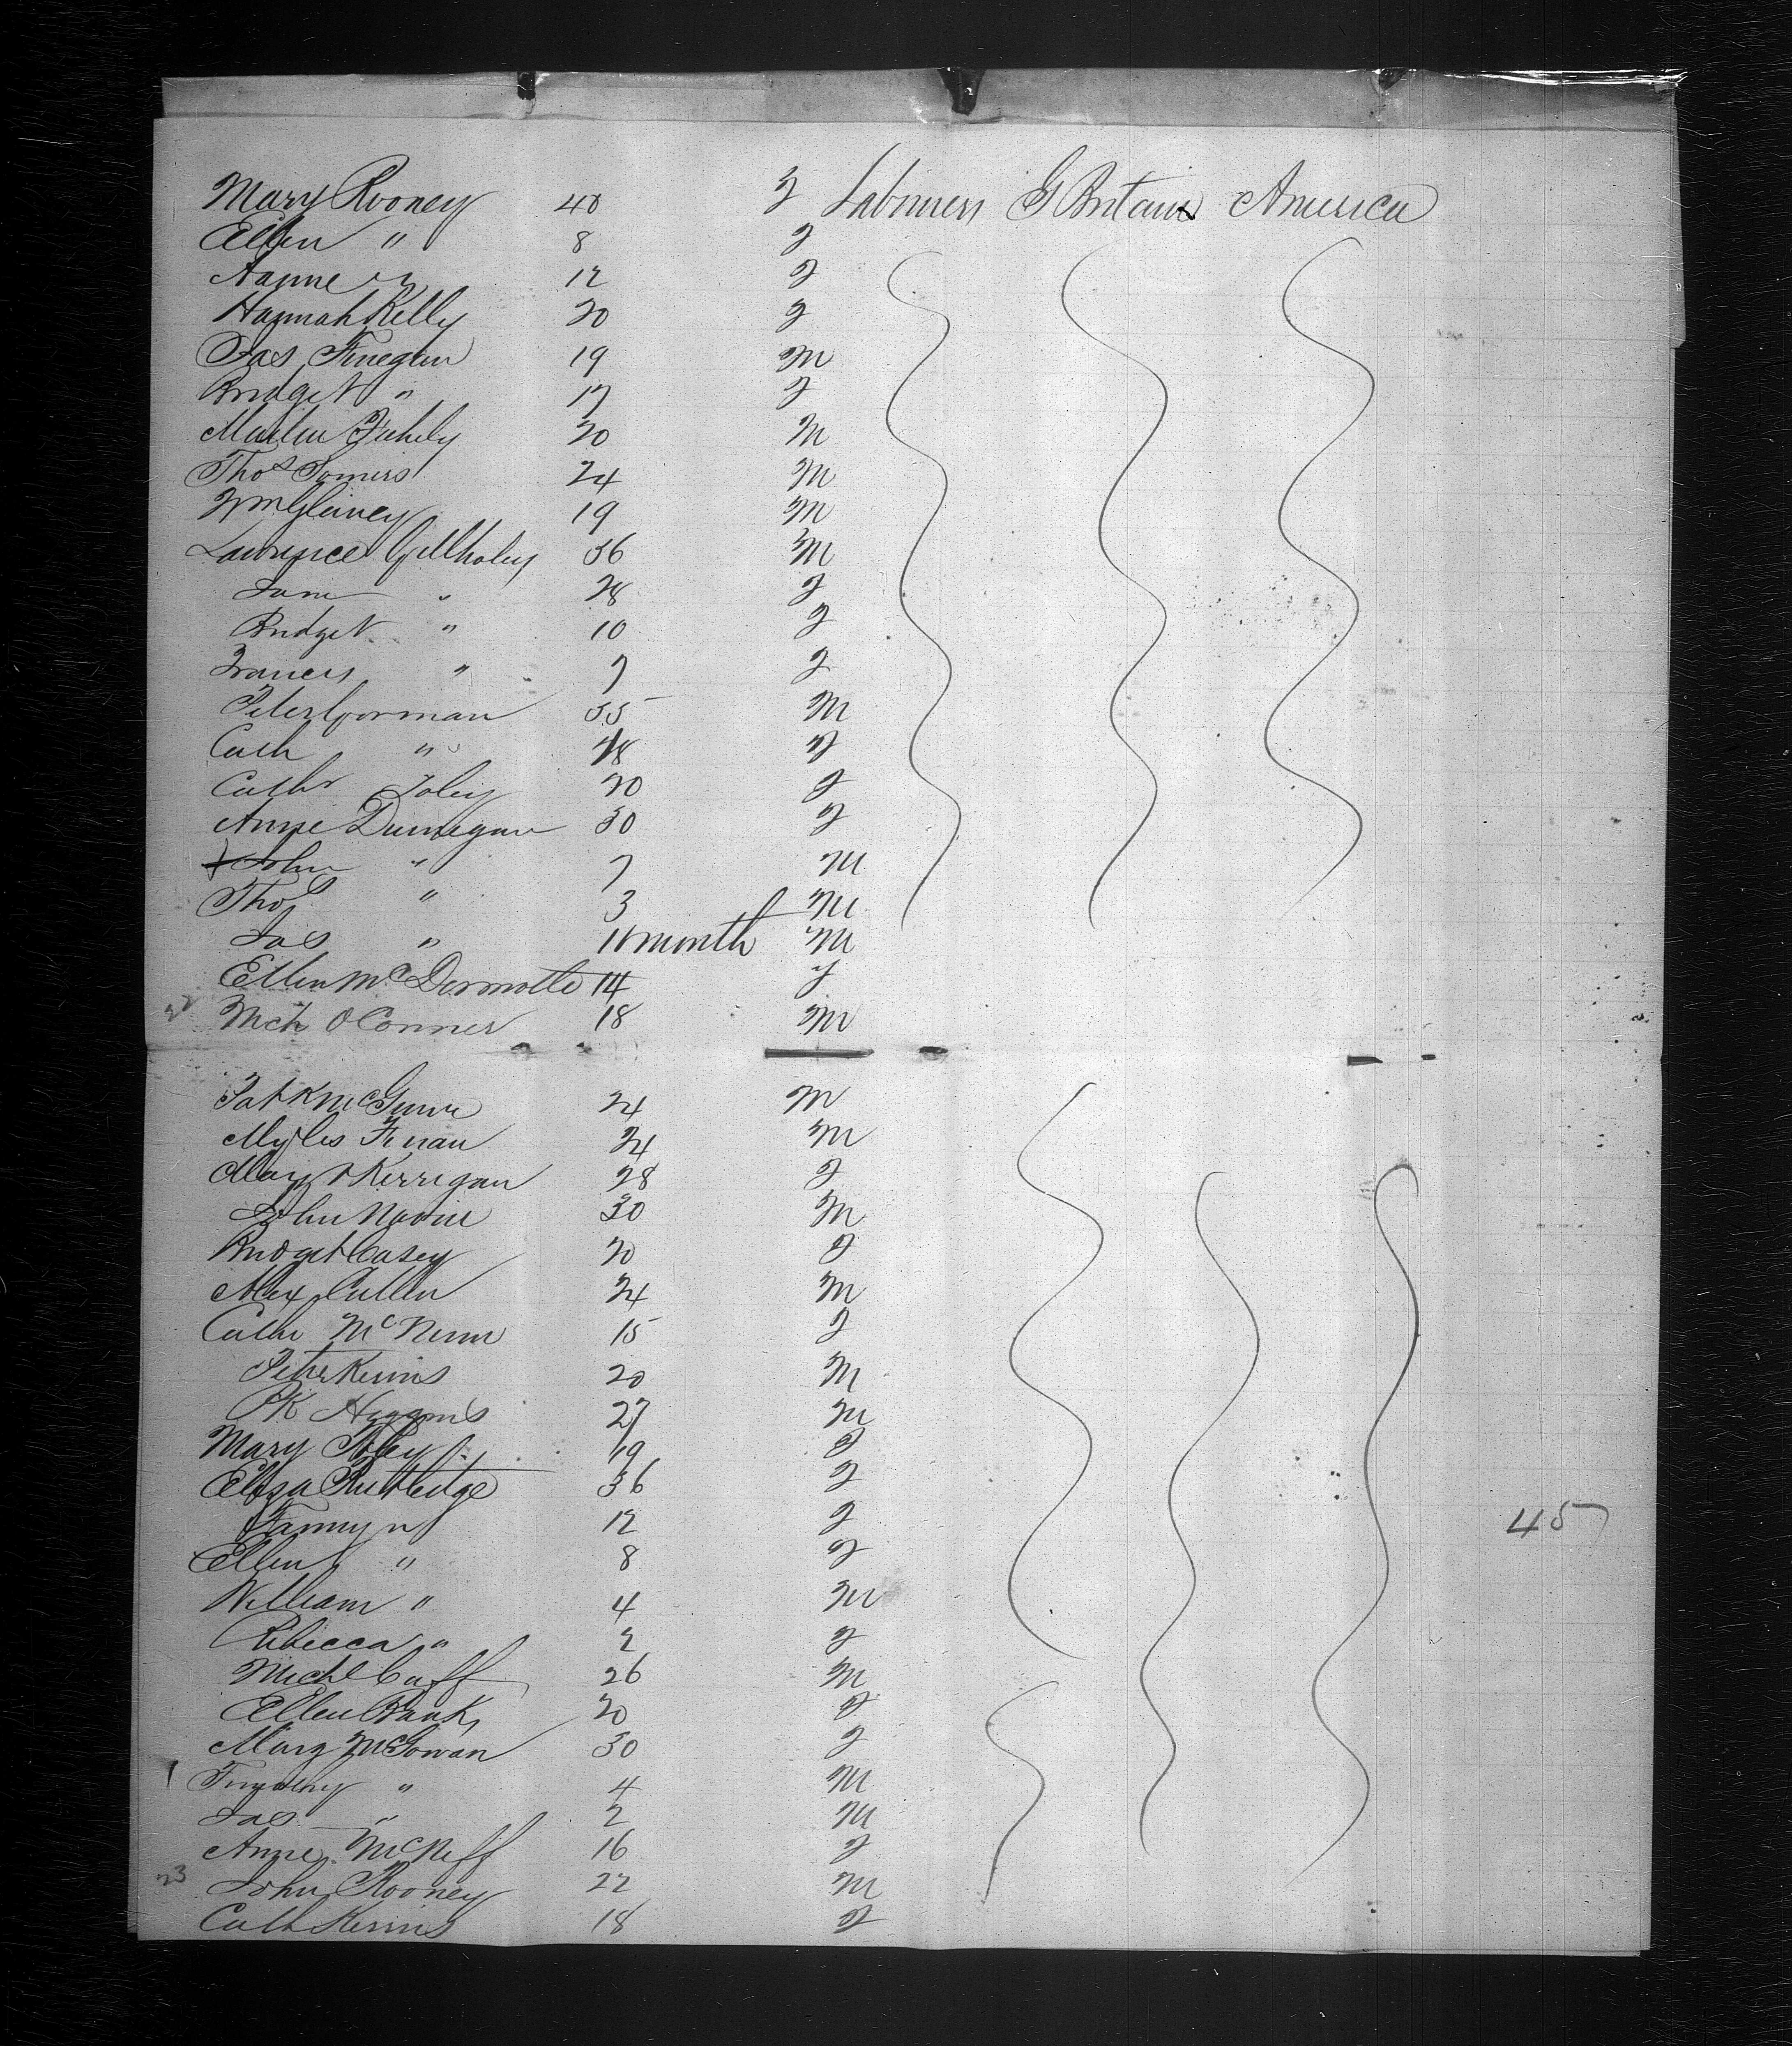 Mary Rooney 40 F Labourers G Britain America
Ellen " 8 F
Anne " 12 F
Hannah Kelly 20 F
Jas Finegan 19 M
Bridget " 17 F
Martin Fahely 20 M
Thos Somers 24 M
Wm Glancy 19 M
Lawrence Gillholey 36 M
Jane " 28 F
Bridget " 10 F
Frances " 7 F
Peter Gorman 35 M
Cath " 48 F
Cathr Foley 20 F
Anne Dunnegan 30 F
John " 7 M
Thos " 3 M
Jas " 11 month M
Ellen McDermotte 14 F
22 Mich O Conner 18 M
Patk McGurre 24 M
Myles Finan 24 M
Margt Kerrigan 28 F
John Navin 30 M
Bridget Casey 20 F
Alex Cullen 24 M
Cathe McNenn 15 F
Peter Kerins 20 M
PK Higgins 27 M
Mary Foley 19 F
Eliza Rutledge 36 F
Fanny " 12 F
45
Ellen " 8 F
William " 4 M
Rebecca " 2 F
Michl Caff 26 M
Ellen Banks 20 F
Mary McGowan 30 F
Timothy " 4 M
Jas " 2 M
Anne McNiff 16 F
23 John Rooney 22 M
Cath Kerins 18 F